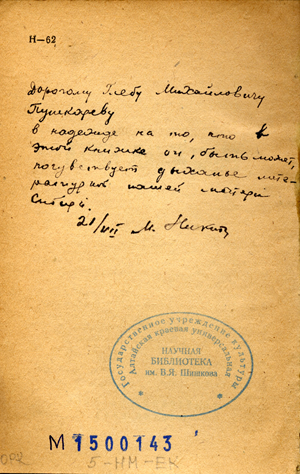 Н—62
Дорогому Глебу Михайловичу
Пушкареву
в надежде на то, что в
этой книжке он, быть может,
почувствует дыханье лите-
ратурной нашей матери
Сибири.
21/VII М. Никитин
Государственное учреждение культуры
Алтайская краевая универсальная
НАУЧНАЯ
БИБЛИОТЕКА
им. В.Я. Шишкова
М 1500143
5-НМ-ЕК